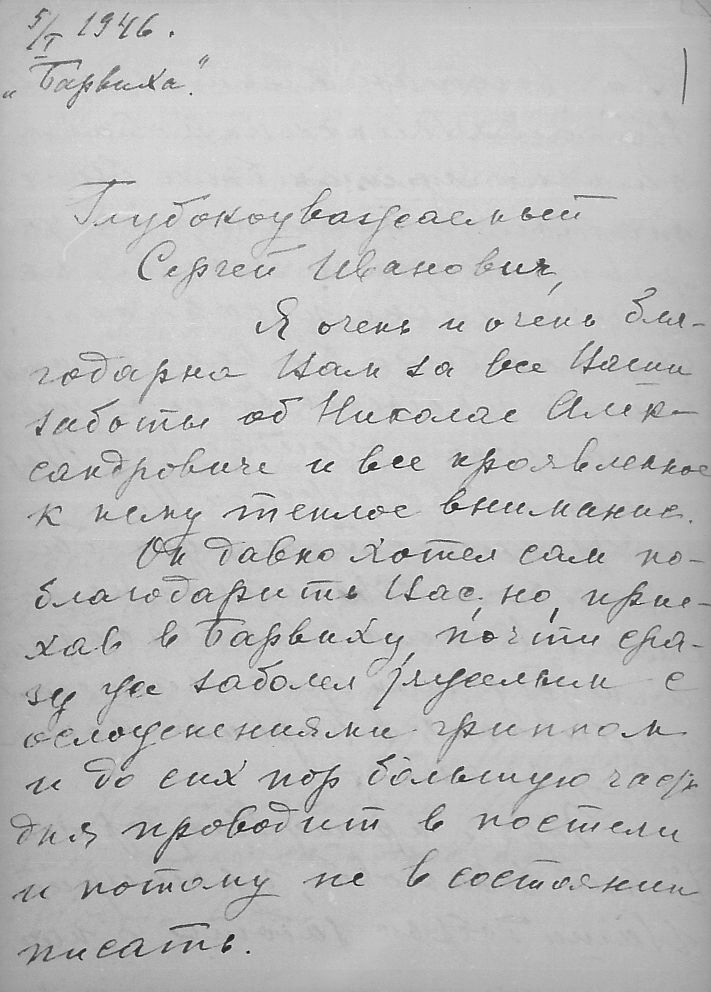 5/I 1946.
„Барвиха".
Глубокоуважаемый
Сергей Иванович,
Я очень и очень бла-
годарна Вам за все Ваши
заботы об Николае Алек-
сандровиче и все проявленное
к нему теплое внимание.
Он давно хотел сам по-
благодарить Вас, но, прие-
хав в Барвиху, почти сра-
зу же заболел тяжелым с
осложнениями гриппом
и до сих пор большую часть
дня проводит в постели
и потому не в состоянии
писать.